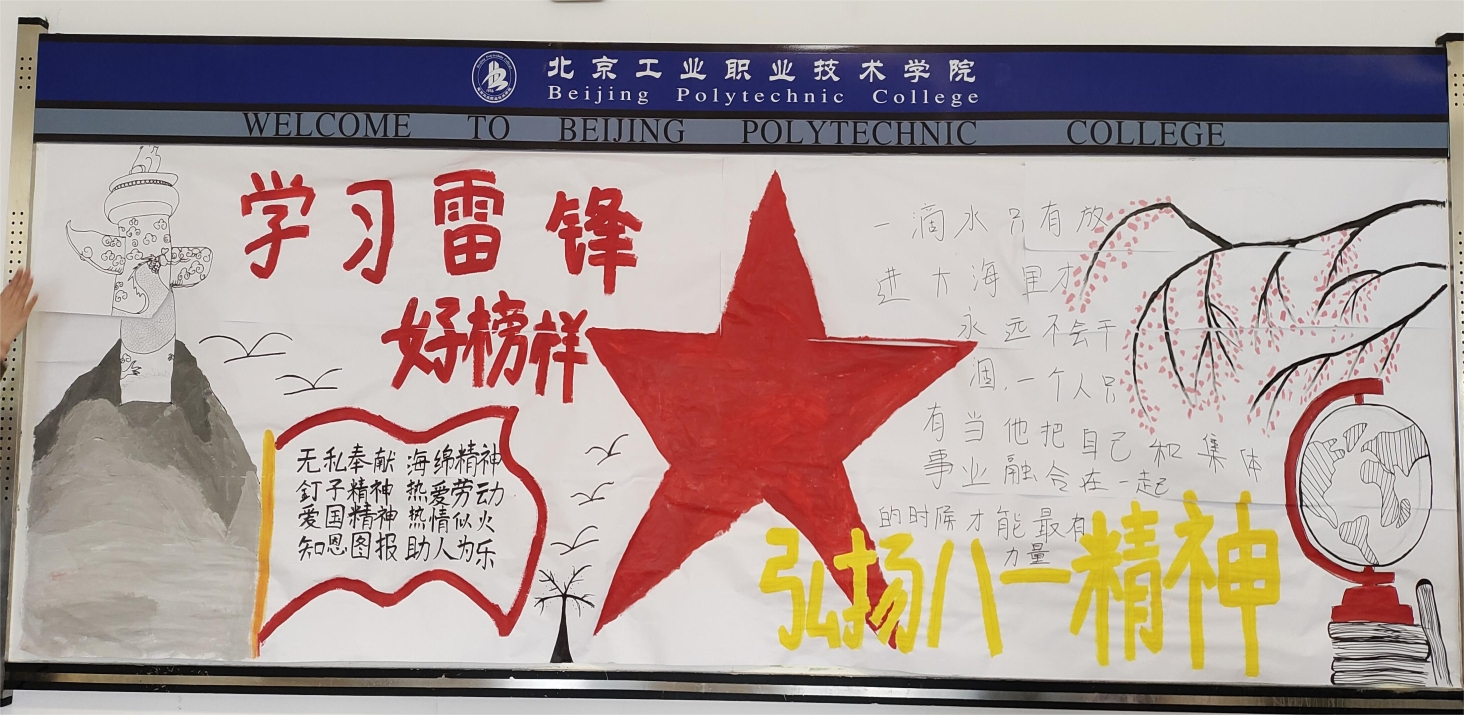 北京工业职业技术学院
Beijing Polytechnic College
WELCOME TO BEIJING POLYTECHNIC COLLEGE
学习雷锋
好榜样
无私奉献 海绵精神
钉子精神 热爱劳动
爱国精神 热情似火
知恩图报 助人为乐
一滴水只有放
进大海里才
永远不会干
涸,一个人只
有当他把自己和集体
事业融合在一起
的时候才能最有
力量
弘扬八一精神